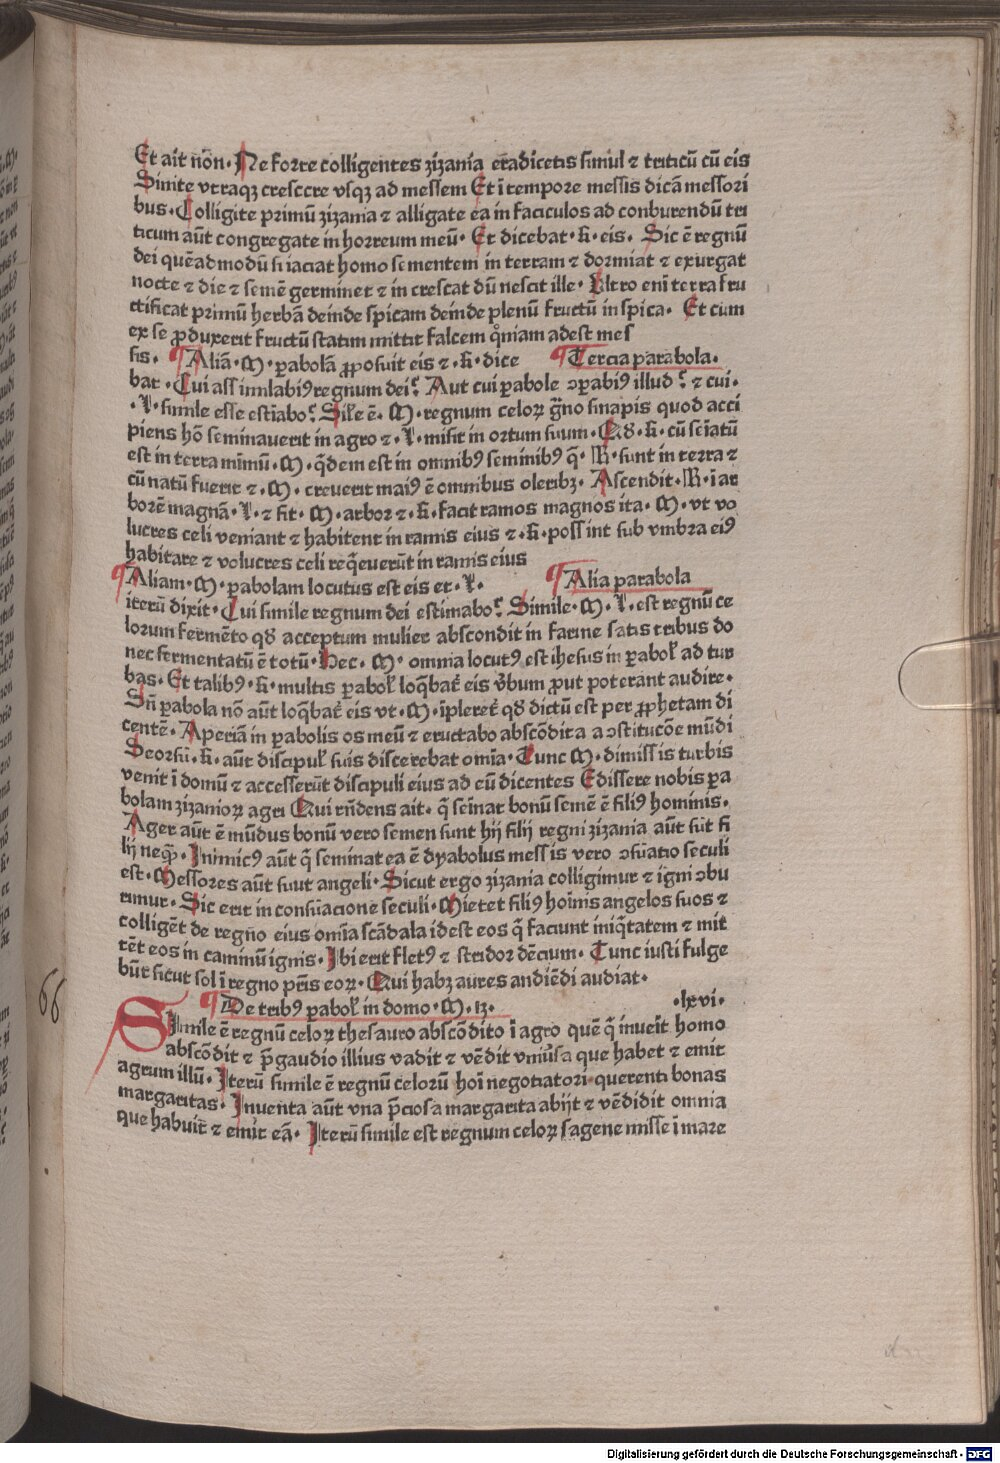 Et ait nōn. Ne forte colligentes zizania eradicetis simul ⁊ triticū cū eis
Sinite vtraqꝫ cresccre vsqꝫ ad messem Et ī tempore messis dicā messori
bus. Colligite primū zizania ⁊ alligate ea in faciculos ad conburendū tri
ticum aūt congregate in horreum meū. Et dicebat. k. eis. Sic ē regnū
dei quēadmodū si iaciat homo sementem in terram ⁊ dormiat ⁊ exurgat
nocte ⁊ die ⁊ semē germinet ⁊ in crescat dū nescit ille. Vltro enī terra fru
ctificat primū herbā deinde spicam deinde plenū fructū in spica. Et cum
ex se ꝓduxerit fructū statim mittit falcem qm̄niam adest mes
sis. Aliā. M. pabolā ꝓposuit eis ⁊. k. dice Tercia parabola.
bat. Cui assimilabiꝰ regnum dei? Aut cui pabole ↄpabiꝰ illud? ⁊ cui.
.L. simile esse estiabo? Sil'e ē. M. regnum celoꝝ gͣno sinapis quod acci
piens hō seminauerit in agro ⁊. L. misit in ortum suum. Qđ. k. cū seīatū
est in terra minimū. M. qͥdem est in omnibꝰ seminibꝰ q̄. R. sunt in terra ⁊
cū natū fuerit ⁊. M. creuerit maiꝰ ē omnibus oleribꝫ. Ascendit. R. ī ar
borē magnā. L. ⁊ fit. M. arbor ⁊. k. facit ramos magnos ita. M. vt vo
lucres celi veniant ⁊ habitent in ramis eius ⁊. k. poss int sub vmbra eiꝰ
habitare ⁊ volucres celi reqͥeuerūt in ramis eius
Aliam. M. pabolam locutus est eis et. L. Alia parabola
iterū dixit. Cui simile regnum dei estimabo? Simile. M. L. est regnū ce
lorum fermēto qđ acceptum mulier abscondit in farine satis tribus do
nec fermentatū ē totū. Hec. M. omnia locutꝰ est ihesus in pabol' ad tur
bas. Et talibꝰ. k. multis pabol' loqͣbat' eis v̄bum ꝓut poterant audire.
Sn̄ pabola nō aūt loqͣbat' eis vt. M. īpleret' qđ dictū est per ꝓphetam di
centē. Aperiā in pabolis os meū ⁊ eructabo abscōdita a ↄstitucōe mūdi
Seorsū. k. aūt discipul' suis disserebat omīa. Tunc M. dimissis turbis
venit ī domū ⁊ accesserūt discipuli eius ad eū dicentes Edissere nobis pa
bolam zizanioꝝ agri Qui rn̄dens ait. qͥ seīnat bonū semē ē filiꝰ hominis.
Ager aūt ē mūdus bonū vero semen sunt hij filij regni zizania aūt sūt fi
lij neqͣ̄. Inimicꝰ aūt qͥ seminat ea ē dyabolus messis vero ↄsūatio seculi
est. Messores aūt suut angeli. Sicut ergo zizania colligimur ⁊ igni ↄbu
rimur. Sic erit in consūacione seculi. Mietet filiꝰ hoīnis angelos suos ⁊
colligēt de regno eius omīa scādala idest eos qͥ faciunt iniqͥtatem ⁊ mit
tēt eos in caminū ignis. Ibi erit fletꝰ ⁊ stridor dēcium. Tunc iusti fulge
būt sicut sol ī regno pr̄is eoꝝ. Qui habꝫ aures andiēdi audiat.
De tribꝰ pabol' in domo. M. 13. .lxvi.
66
Simile ē regnū celoꝝ thesauro abscōdito ī agro quē qͥ īnueīt homo
abscōdit ⁊ p̄gaudio illius vadit ⁊ vēdit vniūsa que habet ⁊ emit
agrum illū. Iterū simile ē regnū celorū hoī negotiatori querenti bonas
margaritas. Inuenta aūt vna p̄ciosa margarita abijt ⁊ vēdidit omnia
que habuit ⁊ emit eā. Iterū simile est regnum celoꝝ sagene misse ī mare
Digitalisierung gefördert durch die Deutsche Forschungsgemeinschaft - DFG